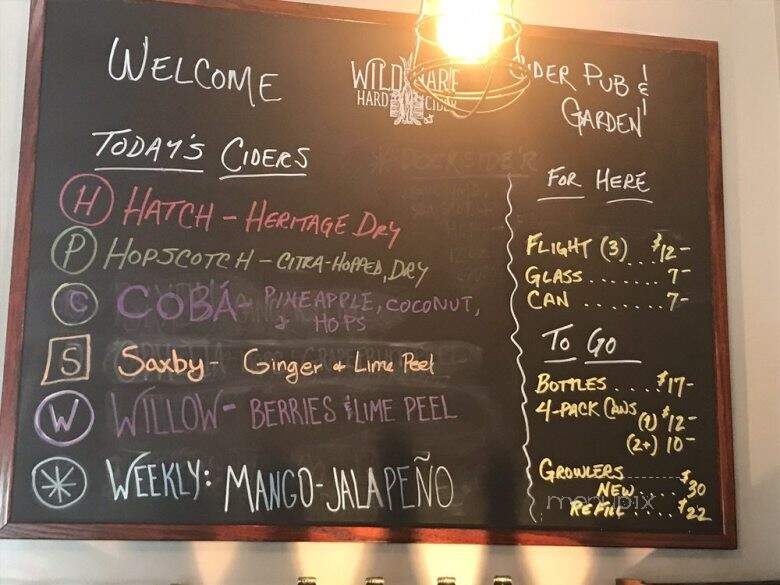 WELCOME
WILD HARE
HARD CIDER
CIDER PUB &
GARDEN
TODAY'S CIDERS
H HATCH - HERITAGE DRY
P HOPSCOTCH - CITRA-HOPPED, DRY
C COBÁ - PINEAPPLE, COCONUT,
& HOPS
S Saxby - Ginger & Lime Peel
W WILLOW - BERRIES & LIME PEEL
WEEKLY: MANGO-JALAPEÑO
FOR HERE
FLIGHT (3) $12-
GLASS....... 7-
CAN ....... 7-
TO GO
BOTTLES.... $17-
4-PACK CANS (1) $12-
(2+) 10-
GROWLERS
NEW.... $30
REFILL.... $22
menupix